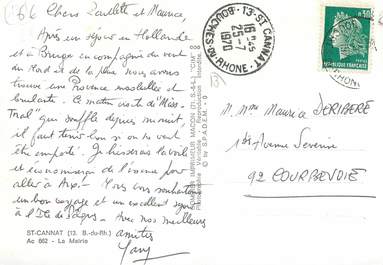 Chers Paulette et Maurice,
Après un séjour en Hollande
et à Bruges en compagnie du vent
du Nord et de la pluie nous avons
trouvé une Provence ensoleillée et
brûlante. Ce matin visite d'"Mis-
tral" qui souffle depuis minuit,
il faut tenir bon si on ne veut
être emporté. Je hisserai la voile
et économiserai de l'essence pour
aller à Aix. Vous souhaitons
un bon voyage et un excellent séjour
à l'Ile de Pâques. Avec nos meilleures
amitiés
ST-CANNAT (13. B.-du-Rh.)
Ac 662 - La Mairie
COMBIER IMPRIMEUR MACON (71. S.-&-L.) "CIM"
Photographie Véritable - Reproduction Interdite.
© by S.P.A.D.E.M. - 0
13-ST CANNAT
16H45
25-7
1970
BOUCHES-DU-RHONE
0,30
RHONE
M. Mme Maurice DERIBERE
Avenue Séverine
92 COURBEVOIE